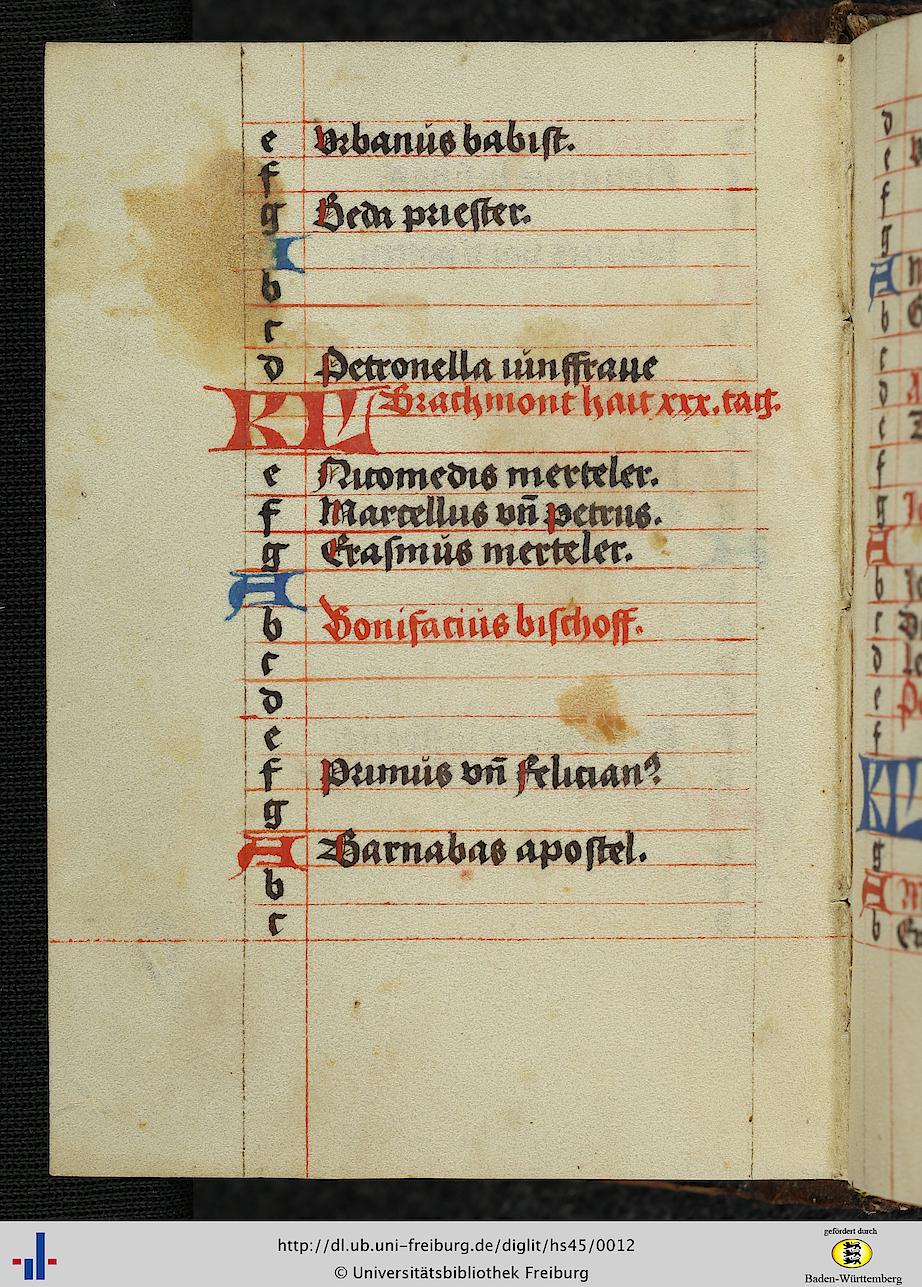 e Vrbanus babist.
f
g Beda priester.
A
b
c
d Petronella iunffraue
KL Brachmont hait xxx. tag.
e Nicomedis merteler.
f Marcellus vn̄ petrus.
g Erasmus merteler.
A
b Bonifacius bischoff.
c
d
e
f Primus vn̄ felicianꝰ
g
A Barnabas apostel.
b
c
d
e
f
g
A
b
c
d
e
f
g
A
b
c
d
e
f
KL
g
A
b
http://dl.ub.uni-freiburg.de/diglit/hs45/0012
© Universitätsbibliothek Freiburg
gefördert durch
Baden-Württemberg